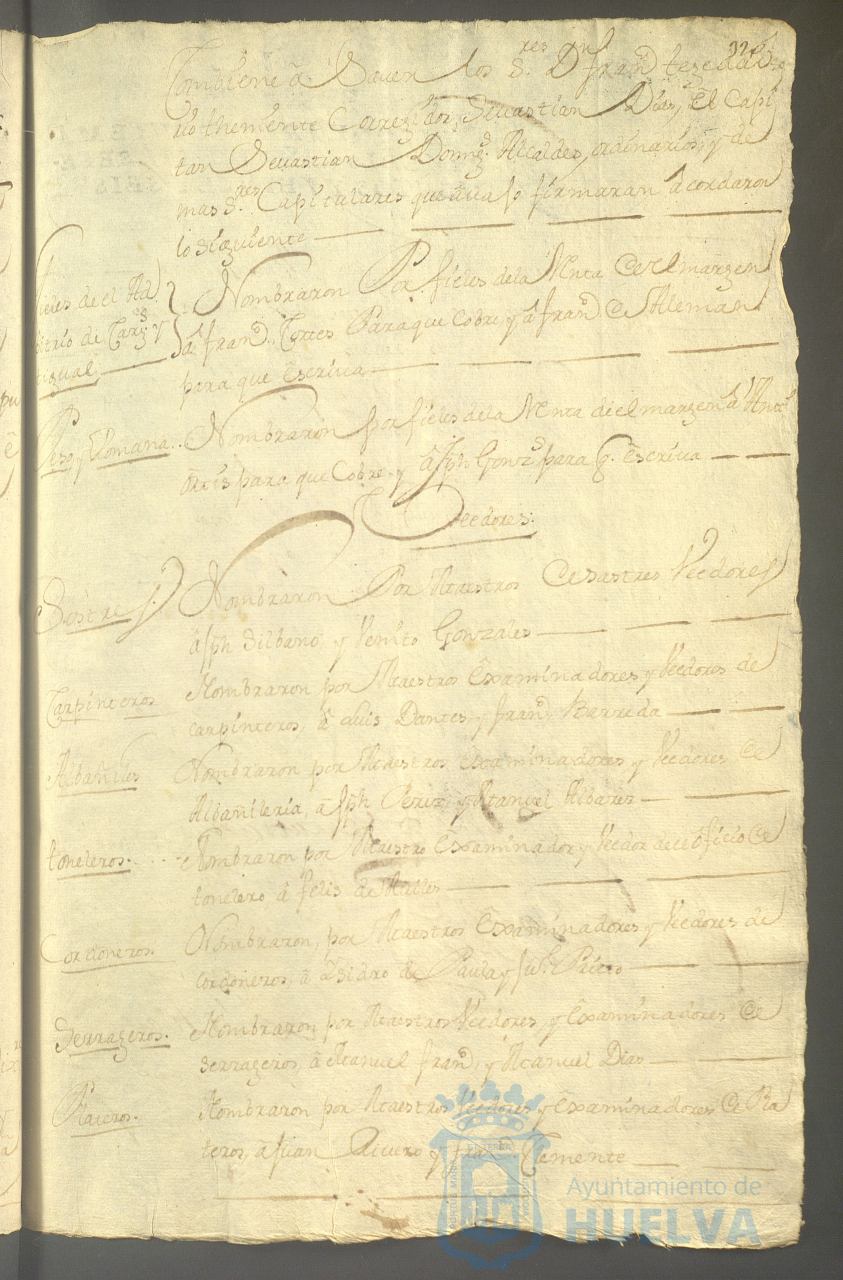 326
Combiene â Saver los S.res Dn fran.co
themente Correxidor, Sevastian Dias, el Capi
tan Sevastian Domng.s Alcaldes, ordinarios, y de
mas S.res Capitulares que avaxo firmaran acordaron
lo Siguiente
fieles de el Ad
bitrio de Carg.s Y
tigual
Nombraron Por fieles dela Renta de el margen
â fran.co Torres Para que Cobre y â fran.co de Aleman
para que Escriva
Peso y Romana
Nombraron por fieles dela Renta de el margen â Ant.o
Ortis para que Cobre y â Jph Gonz.s para q. Escriva
Veedores.
Sastres
Nombraron Por Maestros de sastres Veedores
â Jph Silbano y Venito Gonzales
Carpinteros
Nombraron por Maestros Examinadores y Veedores de
carpinteros, â Luis Dantes y fran.co Barreda
Albañiles
Nombraron por Maestros Examinadores y Veedores de
Albañileria, â Jph Perez y Manuel Albares
toneleros.
Nombraron por Maestro Examinador y Veedor de el oficio de
tonelero â felis de
Cordoneros.
Nombraron, por Maestros Examinadores y Veedores de
cordoneros, â Ysidro de Paula y Ju.o
Serrageros.
Nombraron por Maestros Veedores, y Examinadores de
Serrageros, â Manuel fran.co y Manuel Dias
Nombraron por Maestros Veedores y Examinadores de
teros, â Juan y fran.co Clemente
Ayuntamiento de
HUELVA